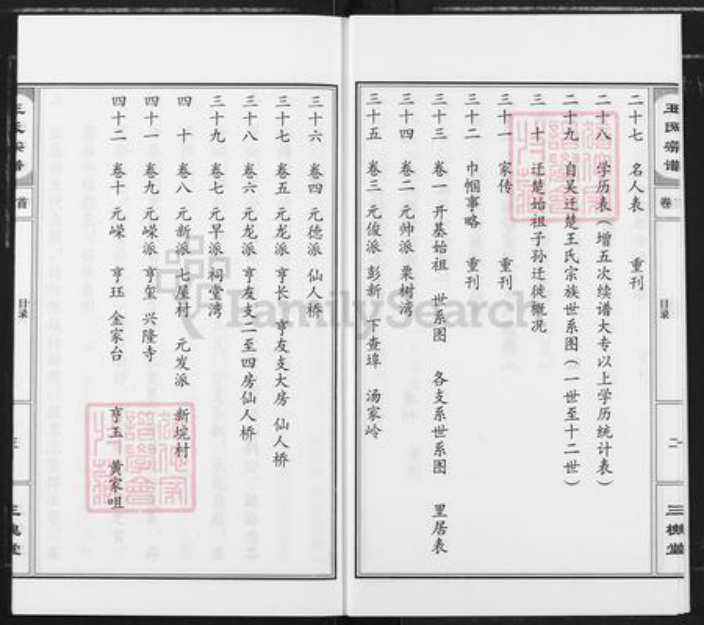 王氏宗谱
卷
目录
二
三槐堂
二十七 名人表 重刊
二十八 学历表（增五次续谱大专以上学历统计表）
二十九 自吴迁楚王氏宗族世系图（一世至十二世）
三十 迁楚始祖子孙迁徙概况
三十一 家传 重刊
三十二 巾帼事略 重刊
三十三 卷一 开基始祖 世系图 各支系世系图 里居表
三十四 卷二 元帅派 栗树湾
三十五 卷三 元俊派 彭新 下查埠 汤家岭
三十六 卷四 元德派 仙人桥
三十七 卷五 元龙派 亨长 亨友支大房 仙人桥
三十八 卷六 元龙派 亨友支二至四房仙人桥
三十九 卷七 元早派 祠堂湾
四十 卷八 元新派 七屋村 元发派 新垸村
四十一 卷九 元嵘派 亨玺 兴隆寺
四十二 卷十 元嵘 亨珏 金家台 亨玉 黄家咀
王氏宗谱
首
目录
三
三槐堂
FamilySearch